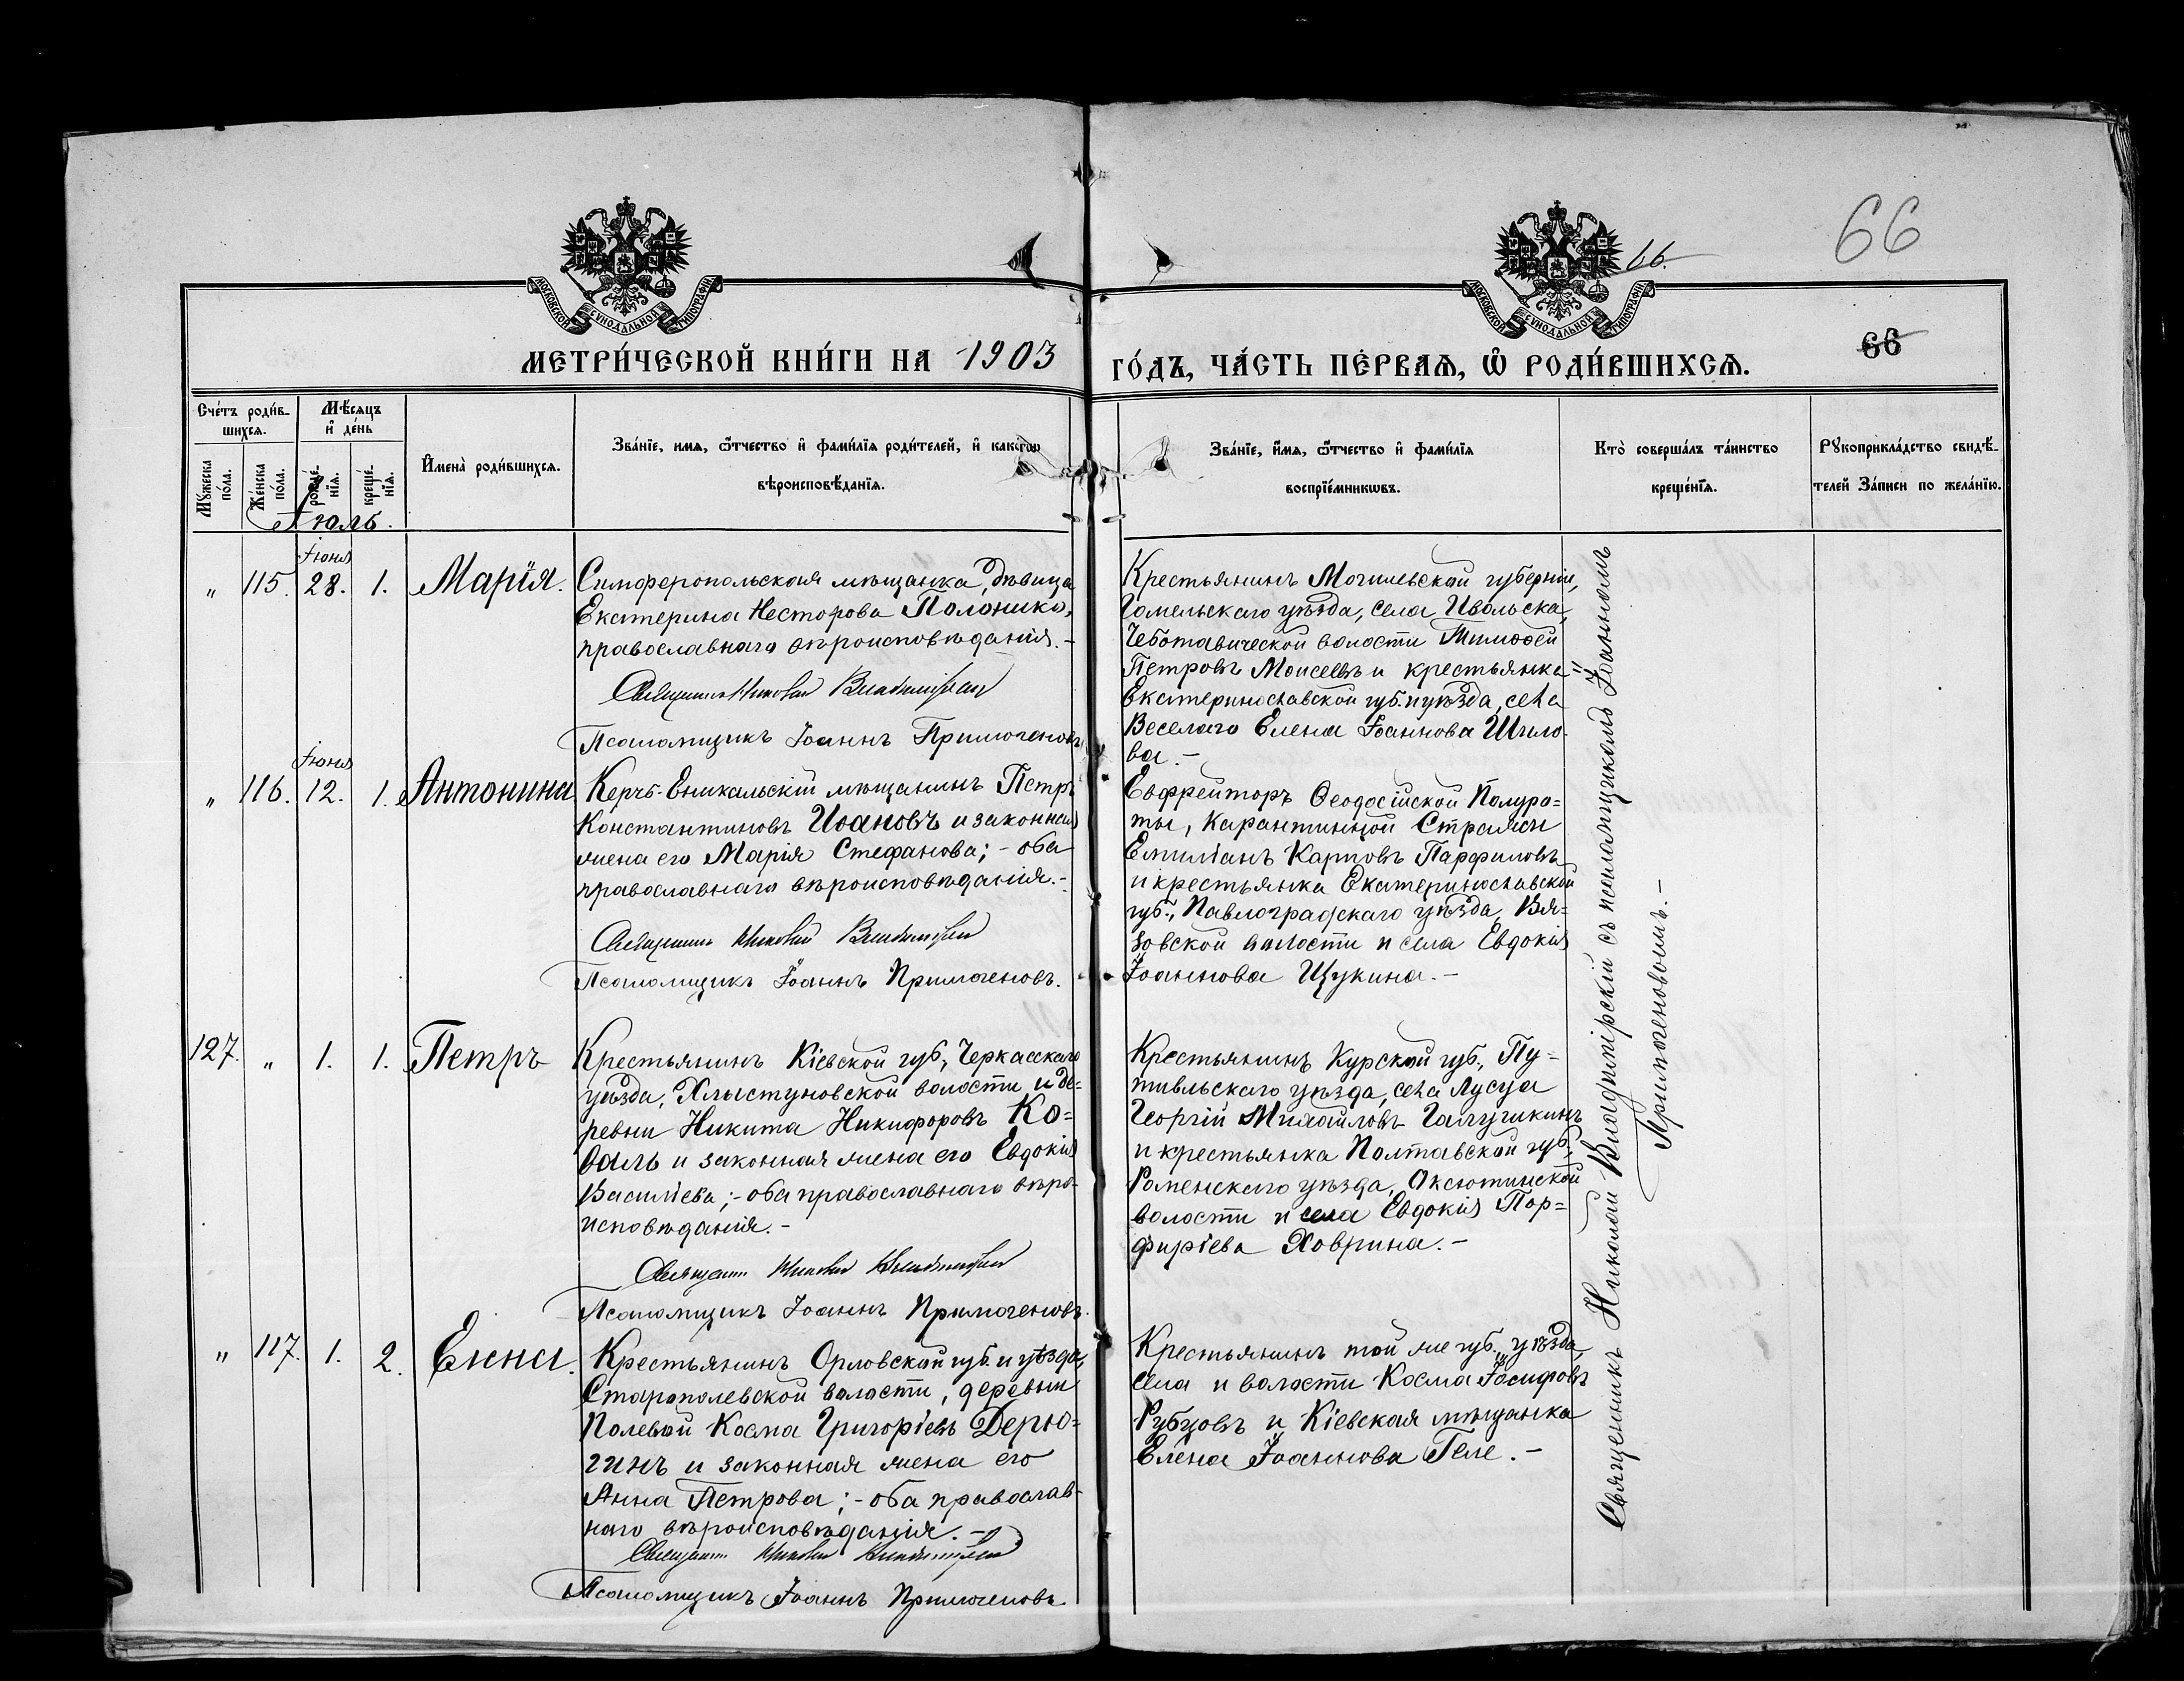 66
66.
МОСКОВСКОЙ СУНОДАЛЬНОЙ ТИПОГРАФІИ
МОСКОВСКОЙ СУНОДАЛЬНОЙ ТИПОГРАФІИ
66
МЕТРИ́ЧЕСКОЙ КНИ́ГИ НА 1903
ГО́ДЪ, ЧА́СТЬ ПЕ́РВАѦ, Ѽ РОДИ́ВШИХСѦ.
Сче́тъ роди́в-
шихсѧ.
Мѣ́сѧцъ
и҆ де́нь
Мꙋжеска
по́ла.
Же́нска
по́ла.
рожде́-
нїѧ.
креще́-
нїѧ.
И҆мена̀ роди́вшихсѧ.
Зва́нїе, имѧ, ѻ҆́тчество и҆ фами́лїѧ роди́телей, и҆ како́гѡ
вѣроисповѣ́данїѧ.
Зва́нїе, и҆́мѧ, ѻ҆́тчество и҆ фами́лїѧ
воспрїе́мникѡвъ.
Кто̀ соверша́лъ та́инство
креще́нїѧ.
Рꙋкоприкла́дство свидѣ́-
телей За́писи по жела́нїю.
Іюль.
Іюня
" 115. 28. 1. Марія.
Симферопольская мѣщанка, дѣвица
Екатерина Несторова Полонико,
православнаго вѣроисповѣданія.-
Священникъ Николай Владимірскій
Псаломщикъ Іоаннъ Примогеновъ
Крестьянинъ Могилевской губерніи,
Гомельскаго уѣзда, села Ивольска,
Чеботавической волости Тимоѳей
Петровъ Моисеевъ и крестьянка
Екатеринославской губ. и уѣзда, села
Веселаго Елена Іоаннова Шило-
ва.-
Іюня
" 116. 12. 1. Антонина
Керчь-Еникальскій мѣщанинъ Петръ
Константиновъ Иоановъ и законная
жена его Марія Стефанова; - оба
православнаго вѣроисповѣданія.-
Священникъ Николай Владимірскій
Псаломщикъ Іоаннъ Примогеновъ.
Ефрейторъ Ѳеодосійской Полуро=
ты, Карантинной Стражи
Емиліанъ Карповъ Парфиловъ
и крестьянка Екатеринославской
губ., Павлоградскаго уѣзда, Вя=
зовской волости и села Евдокія
Іоаннова Щукина.-
127. " 1. 1. Петръ
Крестьянинъ Кіевской губ., Черкасскаго
уѣзда, Хлыстуновской волости и де=
ревни Никита Никифоровъ Ко=
валь и законная жена его Евдокія
Василіева; - оба православнаго вѣро-
исповѣданія.-
Священникъ Николай Владимірскій
Псаломщикъ Іоаннъ Примогеновъ.
Крестьянинъ Курской губ., Пу=
тивльскаго уѣзда, села
Георгій Михайловъ Галушкинъ
и крестьянка Полтавской губ.,
Роменскаго уѣзда, Аксютинской
волости и села Евдокія Пор=
фиріева Ховрина.-
" 117. 1. 2. Елена.
Крестьянинъ Орловской губ. и уѣзда,
Старополевской волости, деревни
Полевой Косма Григоріевъ Дерю=
гинъ и законная жена его
Анна Петрова; - оба православ-
наго вѣроисповѣданія.-
Священникъ Николай Владимірскій
Псаломщикъ Іоаннъ Примогеновъ
Крестьянинъ той же губ. уѣзда,
села и волости Косма Іосифовъ
Рубцовъ и Кіевская мѣщанка
Елена Іоаннова Геле.-
Священникъ Николай Владимірскій съ псаломщикомъ Іоанномъ
Примогеновымъ.-